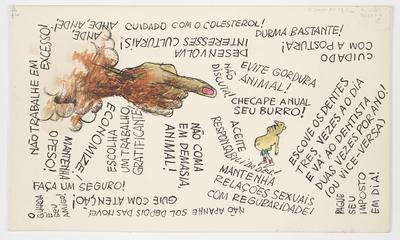 ANDE, ANDE,
ANDE, ANDE!
CUIDADO COM O COLESTEROL!
DURMA BASTANTE!
CUIDADO
COM A POSTURA!
DESENVOLVA
INTERESSES CULTURAIS!
NÃO
DISCUTA!
EVITE GORDURA
ANIMAL!
CHECAPE ANUAL
SEU BURRO!
NÃO TRABALHE EM
EXCESSO!
ECONOMIZE!
ESCOLHA
UM TRABALHO
GRATIFICANTE!
NÃO COMA
EM DEMASIA,
ANIMAL!
ACEITE
RESPONSABILIDADES!
ESCOVE OS DENTES
TRÊS VEZES AO DIA
E VÁ AO DENTISTA
DUAS VEZES POR ANO!
(OU VICE-VERSA)
MANTENHA
O PESO!
MANTENHA
RELAÇÕES SEXUAIS
COM REGULARIDADE!
FAÇA UM VASTO
SEGURO!
O
GUARDA
É
SEU
AMIGO!
GUIE COM ATENÇÃO!
NÃO APANHE SOL DEPOIS DAS NOVE!
PAGUE
SEU
IMPOSTO
EM DIA!